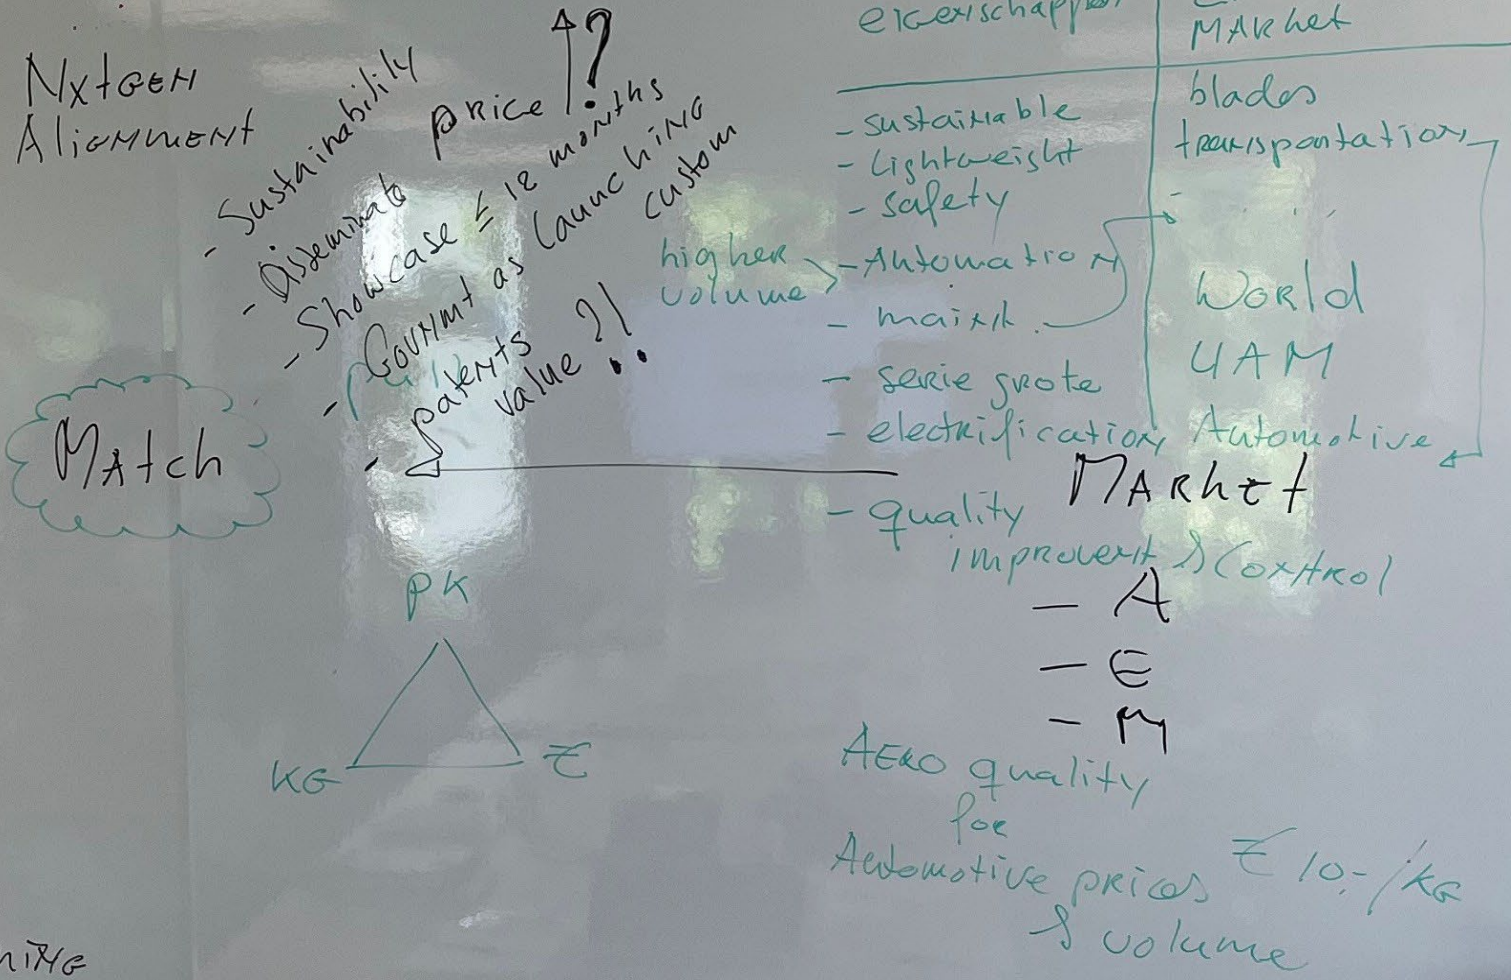 NxtGEN
Alignment
price ?
- Sustainability
- Disseminate
- Showcase ≤ 12 months
- Govnmt as launching
custom
- patents
value ?!
Match
PK
KG
€
eigenschappen
MARket
- sustainable
- Lightweight
- safety
higher
volume
- Automation
- maint.
- serie grote
- electrification
- quality
improvent & Control
blades
transportation
-
World
UAM
Automotive
MARket
- A
- E
- M
AERO quality
for
Automotive prices € 10,-/KG
& volume
hiNG